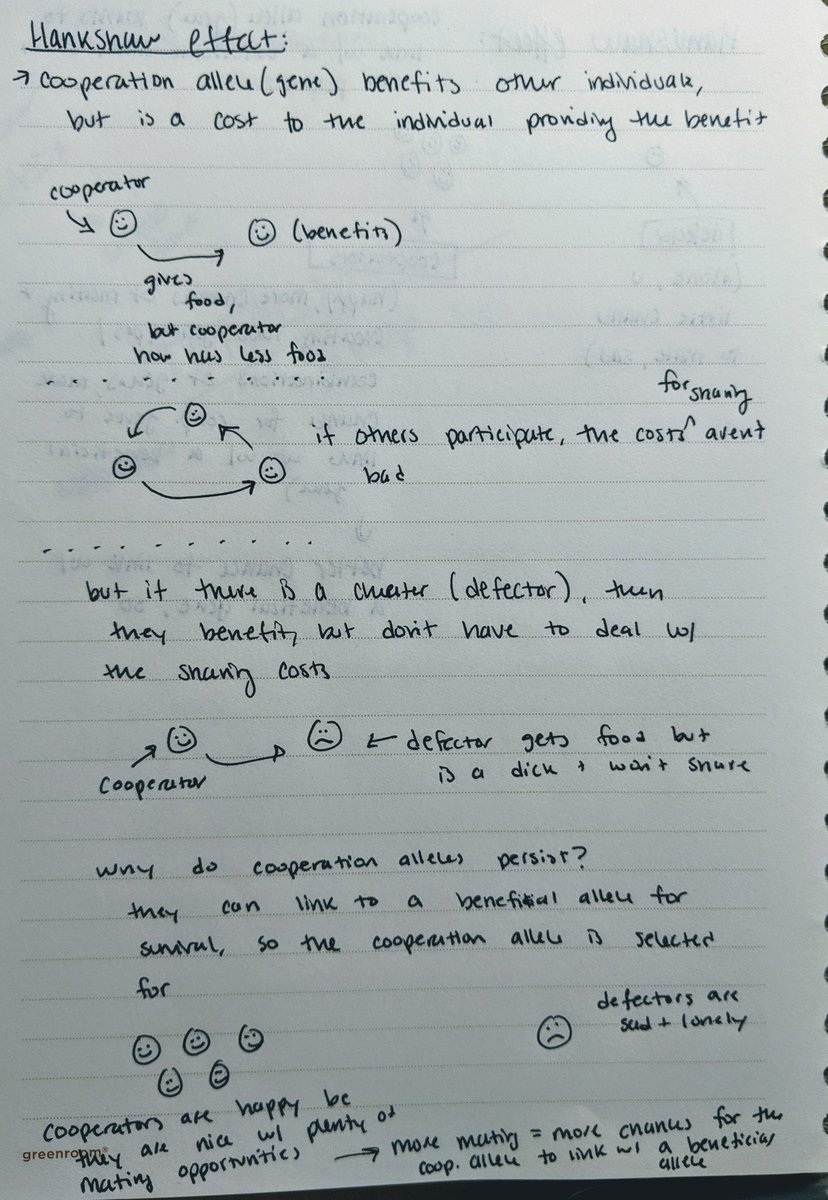 Hankshaw effect:
→ cooperation allele (gene) benefits other individuals,
but is a cost to the individual providing the benefit
cooperator
(benefits)
gives
food,
but cooperator
now has less food
for sharing
if others participate, the costs^ arent
bad
but if there is a cheater (defector), then
they benefit, but don't have to deal w/
the sharing costs
← defector gets food but
is a dick + won't share
cooperator
why do cooperation alleles persist?
they can link to a benefitial allele for
survival, so the cooperation allele is selected
for
defectors are
sad + lonely
cooperators are happy bc
they are nice w/ plenty of
mating opportunities
→ more mating = more chances for the
coop. allele to link w/ a beneficial
allele
greenroom